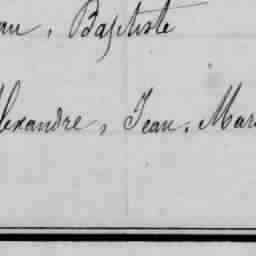 au, Baptiste
lexandre, Jean, Mar